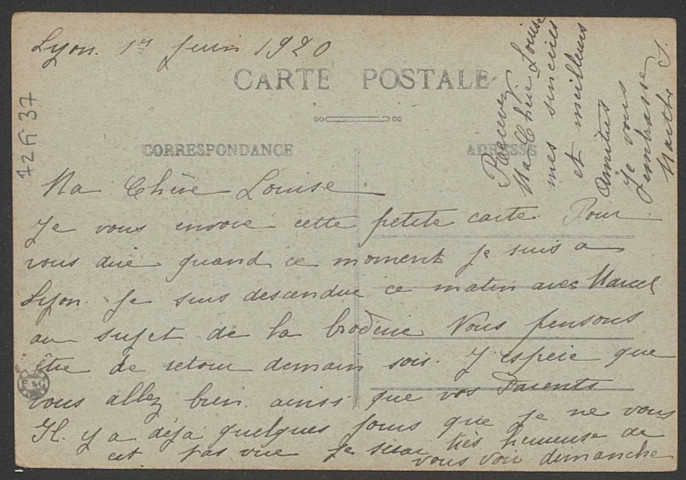 Lyon. 1er Juin 1920
CARTE POSTALE
CORRESPONDANCE
ADRESSE
Ma Chère Louise
Je vous envoie cette petite carte. Pour
vous dire quand ce moment je suis a
Lyon. Je suis descendue ce matin avec Marcel
au sujet de la broderie Nous pensons
être de retour demain soir. J'espère que
vous allez bien ainsi que vos Parents
Il y a déja quelques jours que je ne vous
ai pas vue je serai très heureuse de
vous voir dimanche
Recevez
Ma Chère Louise
mes sincères
et meilleurs
Amitiés
Je vous
embrasse